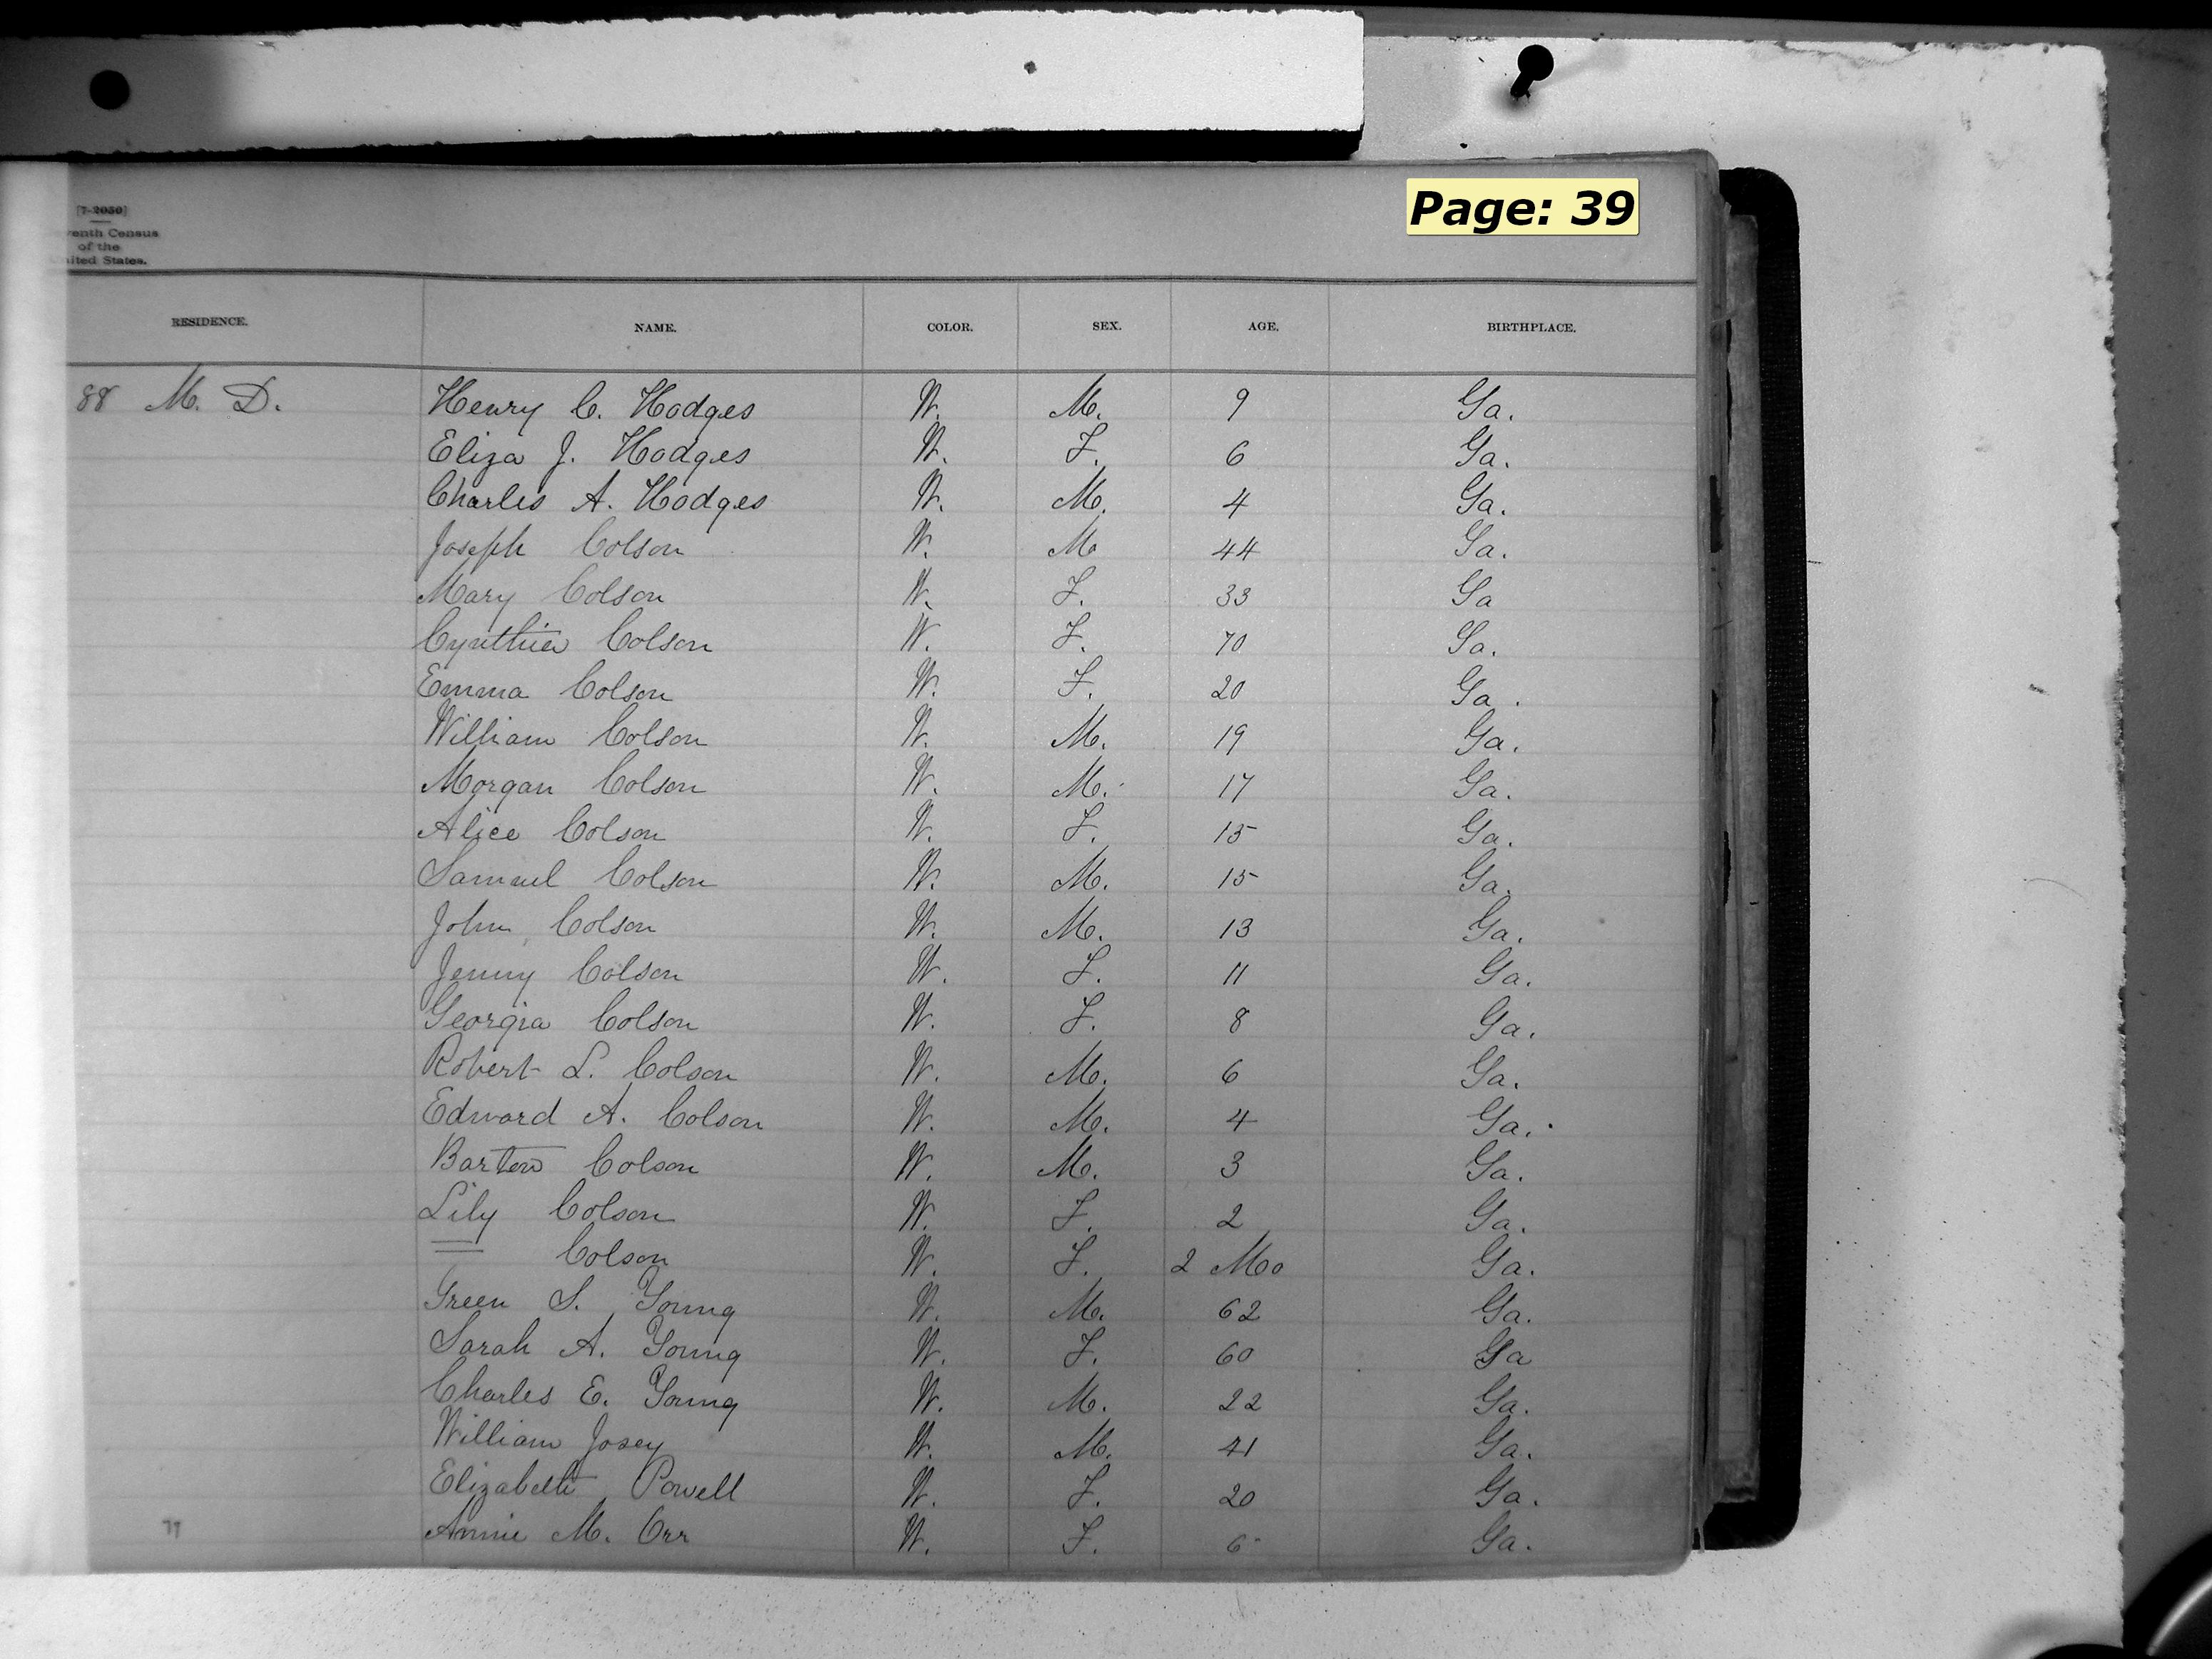 Page: 39
[7-2050]
enth Census
of the
ited States.
RESIDENCE. NAME. COLOR. SEX. AGE. BIRTHPLACE.
88 M. D. Henry C. Hodges W. M. 9 Ga.
Eliza J. Hodges W. F. 6 Ga.
Charles A. Hodges W. M. 4 Ga.
Joseph Colson W. M 44 Ga.
Mary Colson W. F. 33 Ga
Cynthia Colson W. F. 70 Ga.
Emma Colson W. F. 20 Ga.
William Colson W. M. 19 Ga.
Morgan Colson W. M. 17 Ga.
Alice Colson W. F. 15 Ga.
Samuel Colson W. M. 15 Ga.
John Colson W. M. 13 Ga.
Jenny Colson W. F. 11 Ga.
Georgia Colson W. F. 8 Ga.
Robert L. Colson W. M. 6 Ga.
Edward A. Colson W. M. 4 Ga.
Bartow Colson W. M. 3 Ga.
Lily Colson W. F. 2 Ga.
Colson W. F. 2 Mo Ga.
Green S. Young W. M. 62 Ga.
Sarah A. Young W. F. 60 Ga
Charles E. Young W. M. 22 Ga.
William Josey W. M. 41 Ga.
Elizabeth Powell W. F. 20 Ga.
Annie M. Orr W. F. 6 Ga.